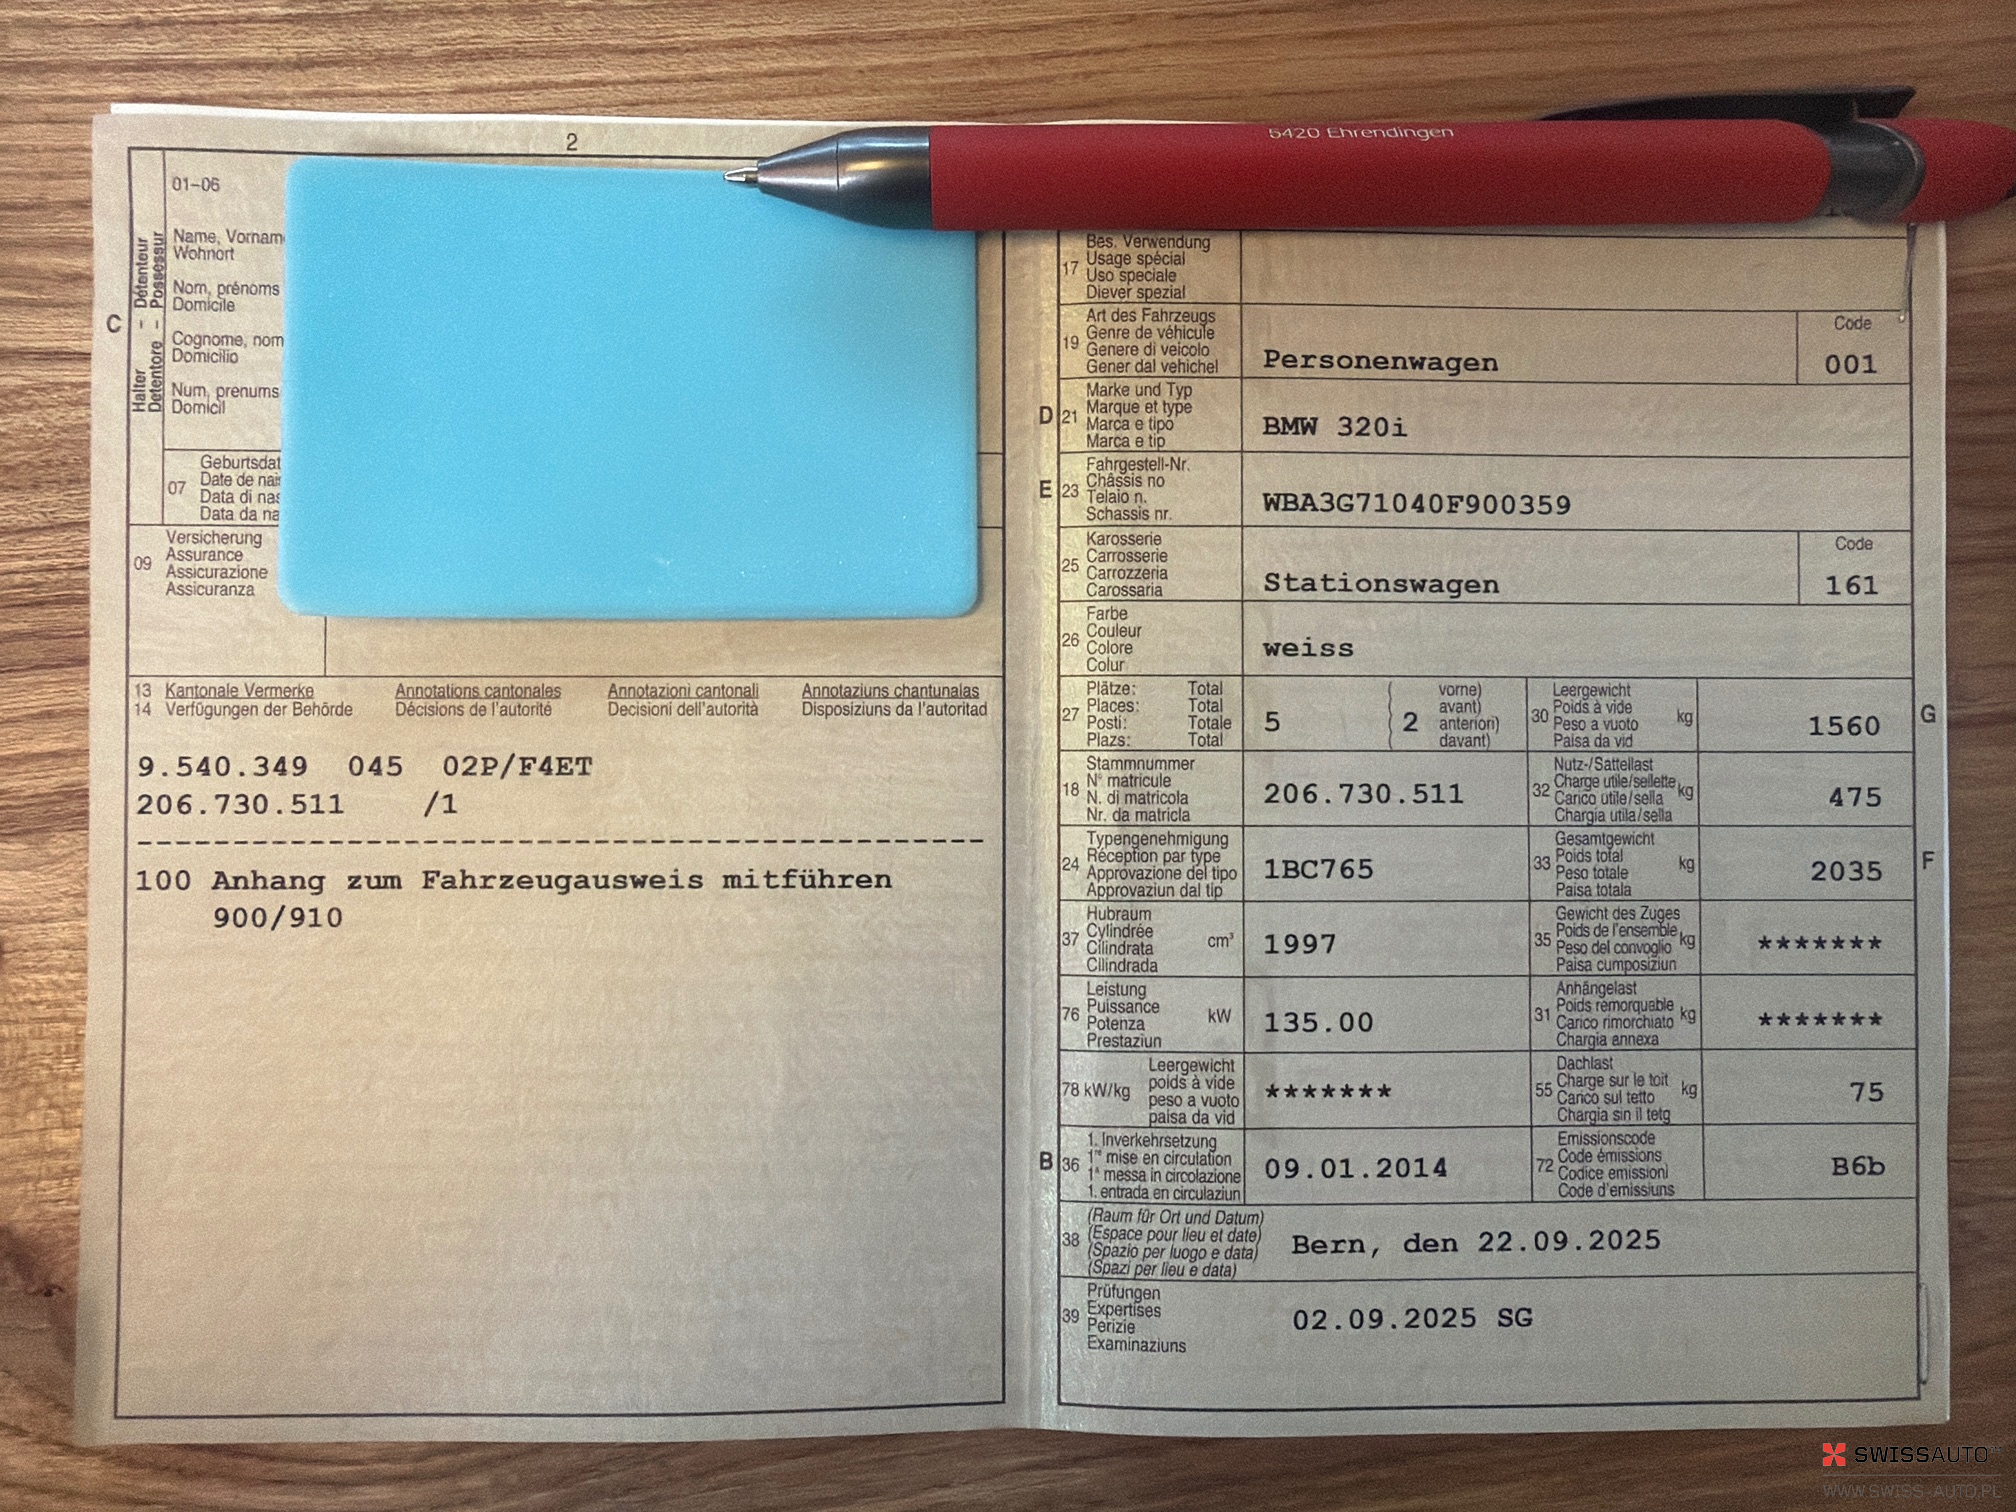 2
5420 Ehrendingen
C
Halter - Détenteur
Detentore - Possessur
01–06
Name, Vornam
Wohnort
Nom, prénoms
Domicile
Cognome, nom
Domicilio
Num, prenums
Domicil
07
Geburtsdat
Date de nai
Data di nas
Data da na
09
Versicherung
Assurance
Assicurazione
Assicuranza
13 Kantonale Vermerke Annotations cantonales Annotazioni cantonali Annotaziuns chantunalas
14 Verfügungen der Behörde Décisions de l'autorité Decisioni dell'autorità Disposiziuns da l'autoritad
9.540.349 045 02P/F4ET
206.730.511 /1
100 Anhang zum Fahrzeugausweis mitführen
900/910
17
Bes. Verwendung
Usage spécial
Uso speciale
Diever spezial
19
Art des Fahrzeugs
Genre de véhicule
Genere di veicolo
Gener dal vehichel
Personenwagen
Code
001
D 21
Marke und Typ
Marque et type
Marca e tipo
Marca e tip
BMW 320i
E 23
Fahrgestell-Nr.
Châssis no
Telaio n.
Schassis nr.
WBA3G71040F900359
25
Karosserie
Carrosserie
Carrozzeria
Carossaria
Stationswagen
Code
161
26
Farbe
Couleur
Colore
Colur
weiss
27
Plätze: Total
Places: Total
Posti: Totale
Plazs: Total
5 ( 2
vorne)
avant)
anteriori)
davant)
30
Leergewicht
Poids à vide
Peso a vuoto
Paisa da vid
kg
1560
G
18
Stammnummer
N° matricule
N. di matricola
Nr. da matricla
206.730.511
32
Nutz-/Sattellast
Charge utile/sellette
Carico utile/sella
Chargia utila/sella
kg
475
24
Typengenehmigung
Réception par type
Approvazione del tipo
Approvaziun dal tip
1BC765
33
Gesamtgewicht
Poids total
Peso totale
Paisa totala
kg
2035
F
37
Hubraum
Cylindrée
Cilindrata
Cilindrada
cm³
1997
35
Gewicht des Zuges
Poids de l'ensemble
Peso del convoglio
Paisa cumposiziun
kg
*******
76
Leistung
Puissance
Potenza
Prestaziun
kW
135.00
31
Anhängelast
Poids remorquable
Carico rimorchiato
Chargia annexa
kg
*******
78 kW/kg
Leergewicht
poids à vide
peso a vuoto
paisa da vid
*******
55
Dachlast
Charge sur le toit
Carico sul tetto
Chargia sin il tetg
kg
75
B 36
1. Inverkehrsetzung
1re mise en circulation
1a messa in circolazione
1. entrada en circulaziun
09.01.2014
72
Emissionscode
Code émissions
Codice emissioni
Code d'emissiuns
B6b
38
(Raum für Ort und Datum)
(Espace pour lieu et date)
(Spazio per luogo e data)
(Spazi per lieu e data)
Bern, den 22.09.2025
39
Prüfungen
Expertises
Perizie
Examinaziuns
02.09.2025 SG
SWISSAUTO
WWW.SWISS-AUTO.PL